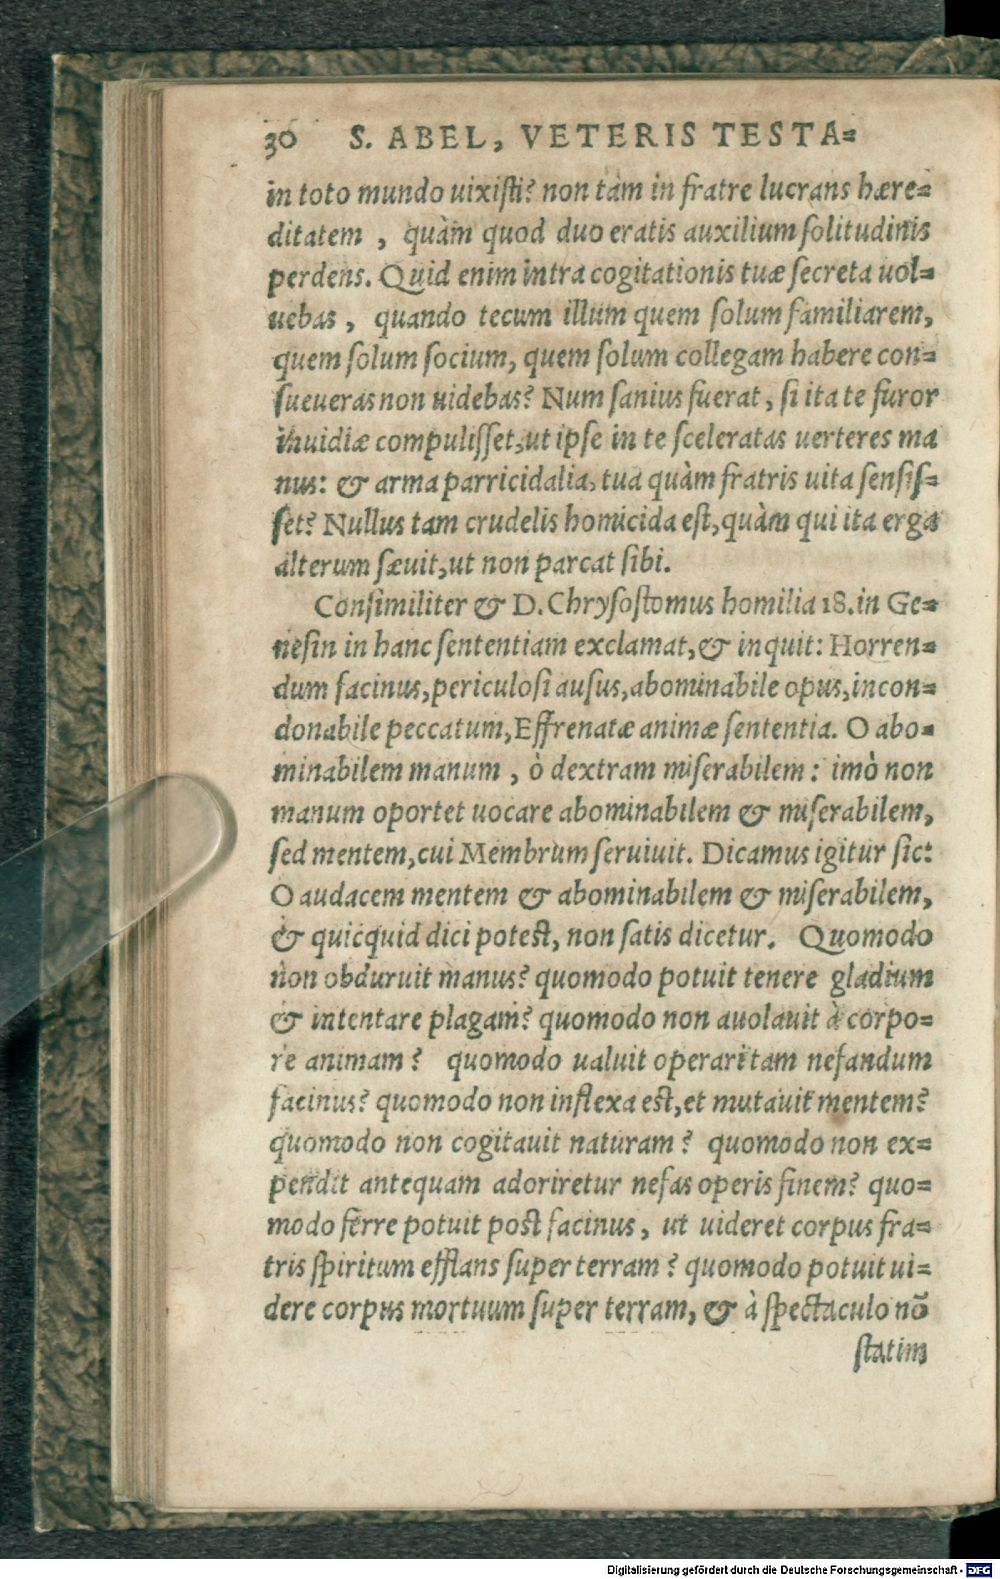 30 S. ABEL, VETERIS TESTA=
in toto mundo uixisti? non tàm in fratre lucrans hære=
ditatem , quàm quod duo eratis auxilium solitudinis
perdens. Quid enim intra cogitationis tuæ secreta uol=
uebas , quando tecum illum quem solum familiarem,
quem solum socium, quem solum collegam habere con=
sueueras non uidebas? Num sanius fuerat, si ita te furor
inuidiæ compulisset, ut ipse in te sceleratas uerteres ma
nus: & arma parricidalia, tua quàm fratris uita sensis=
set? Nullus tam crudelis homicida est, quàm qui ita erga
alterum sæuit, ut non parcat sibi.
Consimiliter & D. Chrysostomus homilia 18. in Ge=
nesin in hanc sententiam exclamat, & inquit: Horren=
dum facinus, periculosi ausus, abominabile opus, incon=
donabile peccatum, Effrenatæ animæ sententia. O abo=
minabilem manum , ò dextram miserabilem : imò non
manum oportet uocare abominabilem & miserabilem,
sed mentem, cui Membrum seruiuit. Dicamus igitur sic:
O audacem mentem & abominabilem & miserabilem,
& quicquid dici potest, non satis dicetur. Quomodo
non obduruit manus? quomodo potuit tenere gladium
& intentare plagam? quomodo non auolauit à corpo=
re animam ? quomodo ualuit operari tam nefandum
facinus? quomodo non inflexa est, et mutauit mentem?
quomodo non cogitauit naturam ? quomodo non ex=
pendit antequam adoriretur nefas operis finem? quo=
modo ferre potuit post facinus, ut uideret corpus fra=
tris spiritum efflans super terram ? quomodo potuit ui=
dere corpus mortuum super terram, & à spectaculo nō
statim
Digitalisierung gefördert durch die Deutsche Forschungsgemeinschaft - DFG